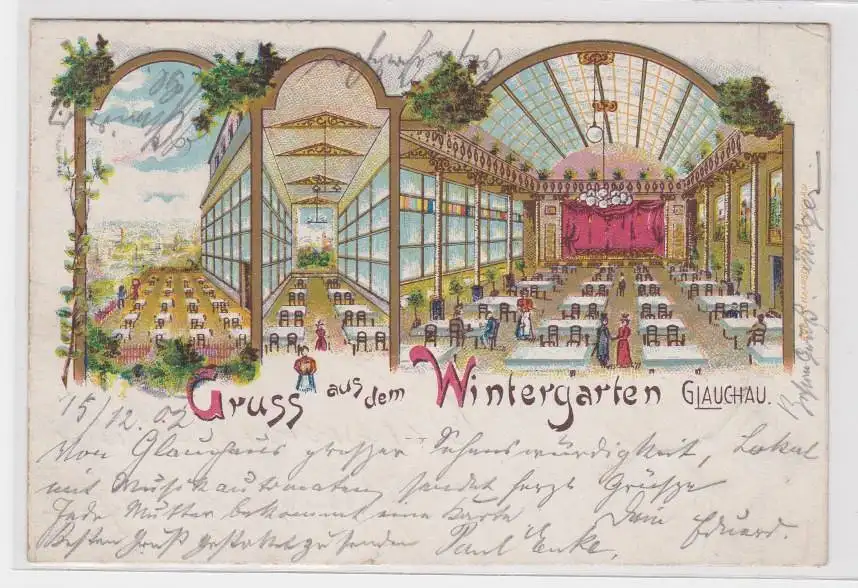 Gruss aus dem Wintergarten GLAUCHAU.
15/12.02
Von Glauchaus grosser Sehenswürdigkeit, Lokal
mit Musikautomaten, sendet herzl. Grüsse
Jede Mutter bekommt eine Karte Dein Eduard.
Besten Gruß gestattet zu senden Paul Enke,